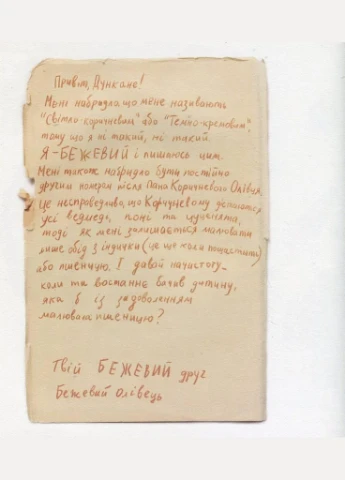 Привіт, Дункане!
Мені набридло, що мене називають
"Світло-коричневим" або "Темно-кремовим",
тому що я ні такий, ні такий.
Я - БЕЖЕВИЙ і пишаюсь цим.
Мені також набридло бути постійно
другим номером після Пана Коричневого Олівця.
Це несправедливо, що Коричневому дістаються
усі ведмеді, поні та цуценята,
тоді як мені залишається малювати
лише обід з індички (це ще коли пощастить)
або пшеницю. І давай начистоту -
коли ти востаннє бачив дитину,
яка б із задоволенням
малювала пшеницю?
Твій БЕЖЕВИЙ друг
Бежевий Олівець